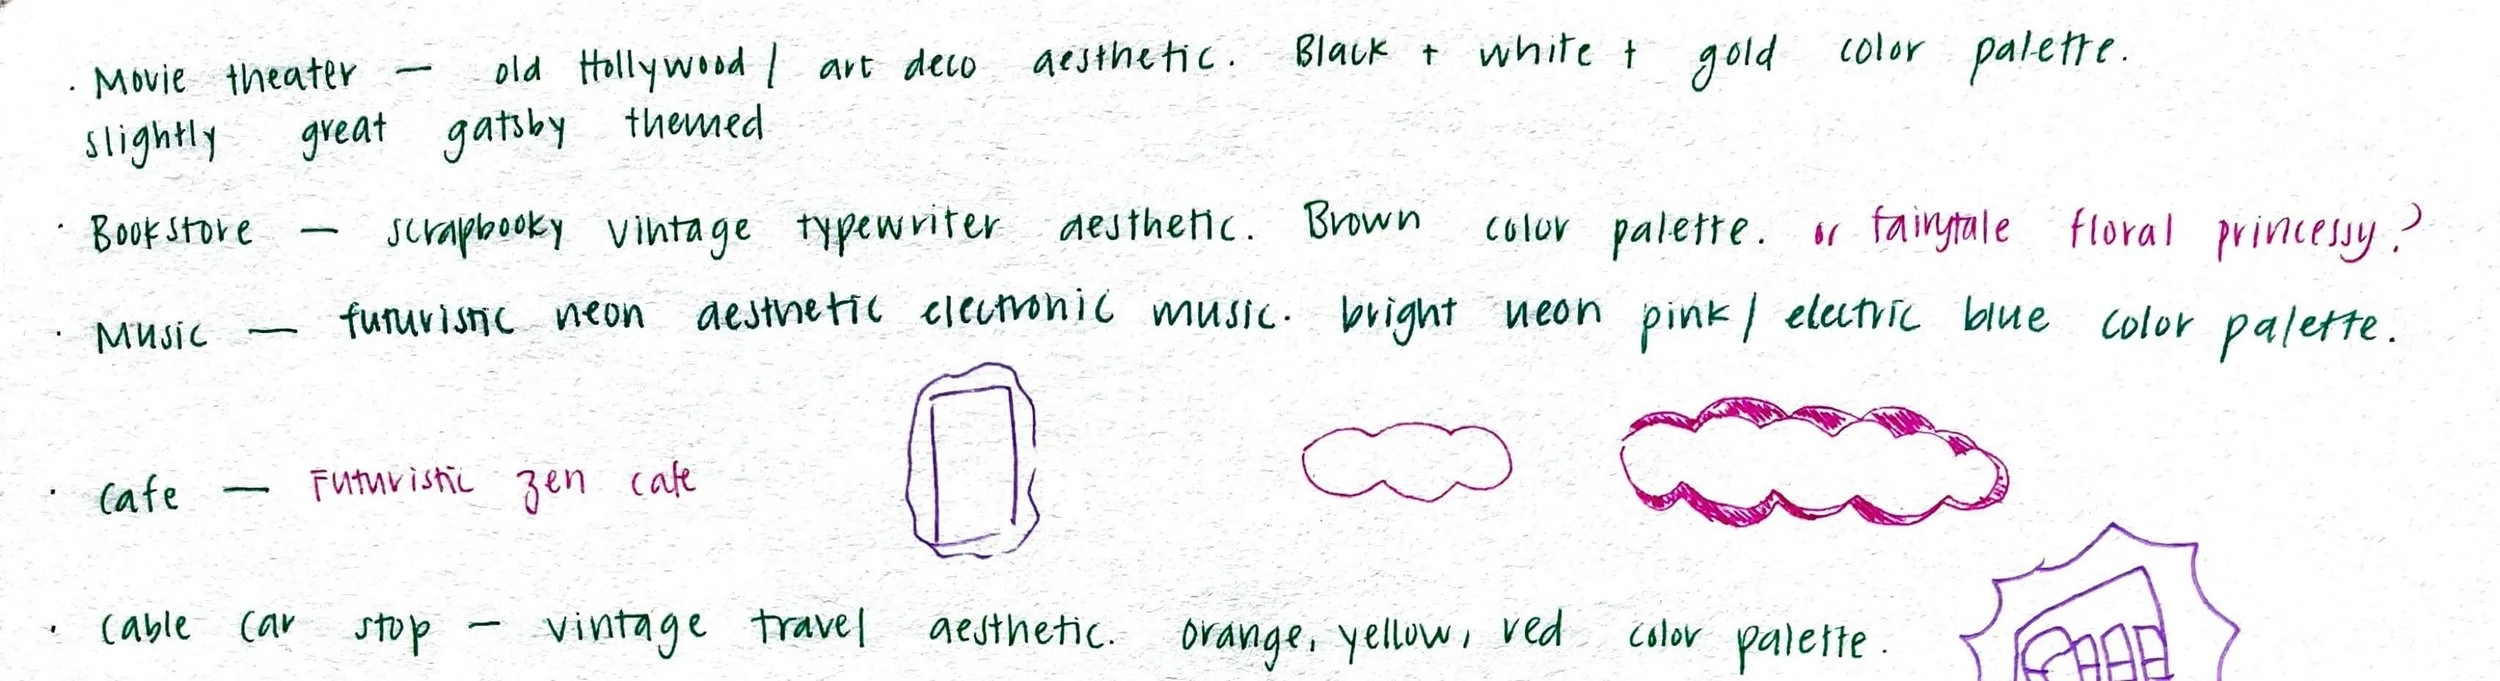 · Movie theater — old Hollywood / art deco aesthetic. Black + white + gold color palette.
slightly great gatsby themed
· Bookstore — scrapbooky vintage typewriter aesthetic. Brown color palette. or fairytale floral princessy?
· Music — futuristic neon aesthetic electronic music. bright neon pink / electric blue color palette.
· Cafe — Futuristic zen cafe
· Cable car stop — vintage travel aesthetic. orange, yellow, red color palette.